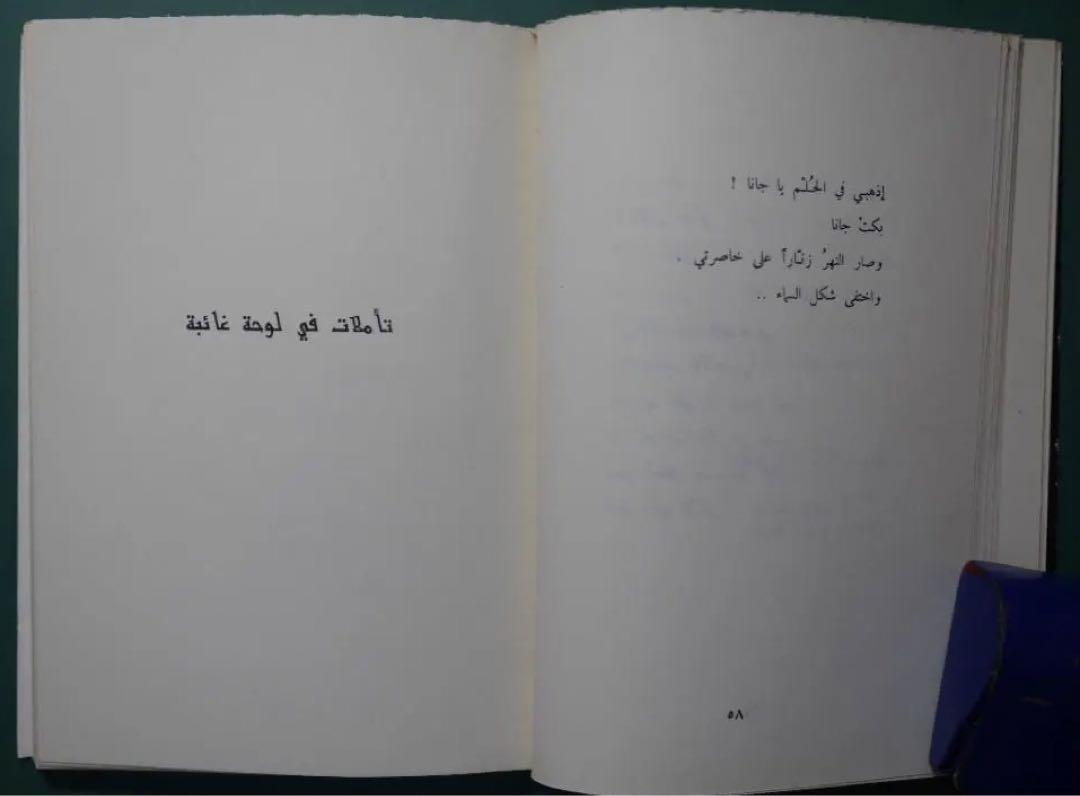 إذهبي في الحُلْم يا جانا !
بكتْ جانا
وصار النهرُ زنّاراً على خاصرتي .
واختفى شكل السماء ..
٥٨
تأملات في لوحة غائبة